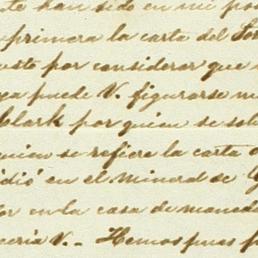 te han sido en mi po
primera la carta del Sor
uste por considerar que
ya puede V. figurarse m
Clark por quien se sol
quien se refiere la carta
idió en el mineral de
or en la casa de moned
ceria V. – Hemos pues p